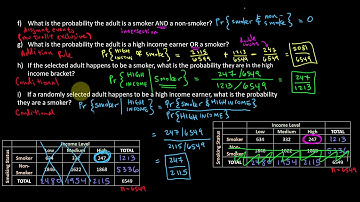 f) What is the probability the adult is a smoker AND a non-smoker? Pr{smoker & non-smoker} = 0
Disjoint events (mutually exclusive) intersection
g) What is the probability the adult is a high income earner OR a smoker?
Addition Rule Pr{HIGH INCOME or smoker} = 2115/6549 + 1213/6549 - 247/6549 = 3081/6549
h) If the selected adult happens to be a smoker, what is the probability they are in the high
income bracket?
(Conditional) Pr{HIGH INCOME | smoker} = 247/6549 / 1213/6549 = 247/1213
i) If a randomly selected adult happens to be a high income earner, what is the probability
they are a smoker?
Conditional Pr{smoker | HIGH INCOME} = Pr{smoker & HIGH INCOME} / Pr{HIGH INCOME}
= 247/6549 / 2115/6549
= 247/2115
Income Level
Low Medium High TOTAL
Smoking Status
Smoker 634 332 247 1213
Non-Smoker 1846 1622 1868 5336
TOTAL 2480 1954 2115 6549
n=6549
Income Level
Low Medium High TOTAL
Smoking Status
Smoker 634 332 247 1213
Non-Smoker 1846 1622 1868 5336
TOTAL 2480 1954 2115 6549
n=6549